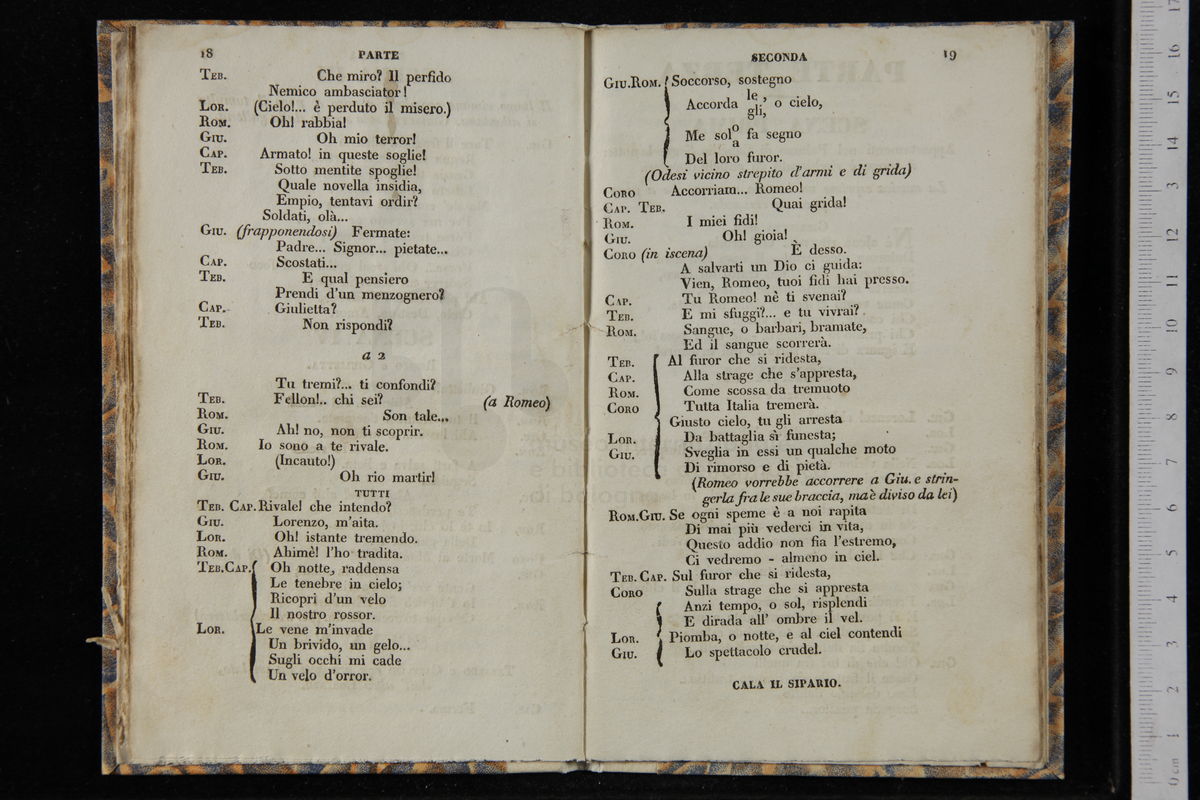 18 PARTE
TEB. Che miro? Il perfido
Nemico ambasciator!
LOR. (Cielo!... è perduto il misero.)
ROM. Oh! rabbia!
GIU. Oh mio terror!
CAP. Armato! in queste soglie!
TEB. Sotto mentite spoglie!
Quale novella insidia,
Empio, tentavi ordir?
Soldati, olà...
GIU. (frapponendosi) Fermate:
Padre... Signor... pietate...
CAP. Scostati...
TEB. E qual pensiero
Prendi d'un menzognero?
CAP. Giulietta?
TEB. Non rispondi?
a 2
Tu tremi?... ti confondi?
TEB. Fellon!.. chi sei? (a Romeo)
ROM. Son tale...
GIU. Ah! no, non ti scoprir.
ROM. Io sono a te rivale.
LOR. (Incauto!)
GIU. Oh rio martir!
TUTTI
TEB. CAP. Rivale! che intendo?
GIU. Lorenzo, m'aita.
LOR. Oh! istante tremendo.
ROM. Ahimè! l'ho tradita.
TEB.CAP. Oh notte, raddensa
Le tenebre in cielo;
Ricopri d'un velo
Il nostro rossor.
LOR. Le vene m'invade
Un brivido, un gelo...
Sugli occhi mi cade
Un velo d'orror.
SECONDA 19
GIU.ROM. Soccorso, sostegno
Accorda le, gli, o cielo,
Me solo a fa segno
Del loro furor.
(Odesi vicino strepito d'armi e di grida)
CORO Accorriam... Romeo!
CAP. TEB. Quai grida!
ROM. I miei fidi!
GIU. Oh! gioia!
CORO (in iscena) È desso.
A salvarti un Dio ci guida:
Vien, Romeo, tuoi fidi hai presso.
CAP. Tu Romeo! nè ti svenai?
TEB. E mi sfuggi?... e tu vivrai?
ROM. Sangue, o barbari, bramate,
Ed il sangue scorrerà.
TEB. Al furor che si ridesta,
CAP. Alla strage che s'appresta,
ROM. Come scossa da tremuoto
CORO Tutta Italia tremerà.
Giusto cielo, tu gli arresta
LOR. Da battaglia sì funesta;
GIU. Sveglia in essi un qualche moto
Di rimorso e di pietà.
(Romeo vorrebbe accorrere a Giu. e strin-
gerla fra le sue braccia, ma è diviso da lei)
ROM.GIU. Se ogni speme è a noi rapita
Di mai più vederci in vita,
Questo addio non fia l'estremo,
Ci vedremo - almeno in ciel.
TEB. CAP. Sul furor che si ridesta,
CORO Sulla strage che si appresta
Anzi tempo, o sol, risplendi
E dirada all' ombre il vel.
LOR. Piomba, o notte, e al ciel contendi
GIU. Lo spettacolo crudel.
CALA IL SIPARIO.
0 cm 1 2 3 4 5 6 7 8 9 10 11 12 13 14 15 16 17